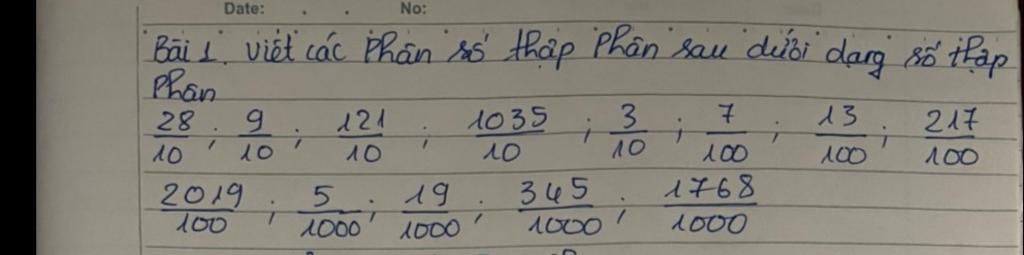 Date: . . No:
Bài 1. viết các phân số thập phân sau dưới dạng số thập
phân
28/10 ; 9/10 ; 121/10 ; 1035/10 ; 3/10 ; 7/100 ; 13/100 ; 217/100
2019/100 ; 5/1000 ; 19/1000 ; 345/1000 ; 1768/1000